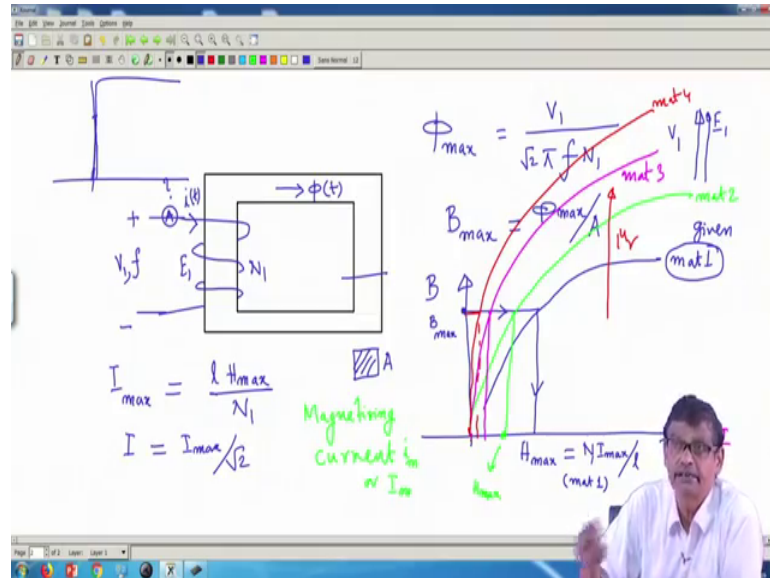 File Edit View Journal Tools Options Help
Sans Normal 12
i
A
i(t)
→ ϕ(t)
+
V₁,f
E₁
N₁
-
A
I max = l Hmax / N₁
I = Imax/√2
Magnetizing
current im
or Im
ϕmax = V₁ / √2 π f N₁
Bmax = ϕmax / A
mat 4
V₁
E₁
mat 3
mat 2
μr
given
mat 1
B
Bmax
Hmax = N Imax/l
(mat 1)
Hmax
Page 2 of 2 Layer: Layer 1